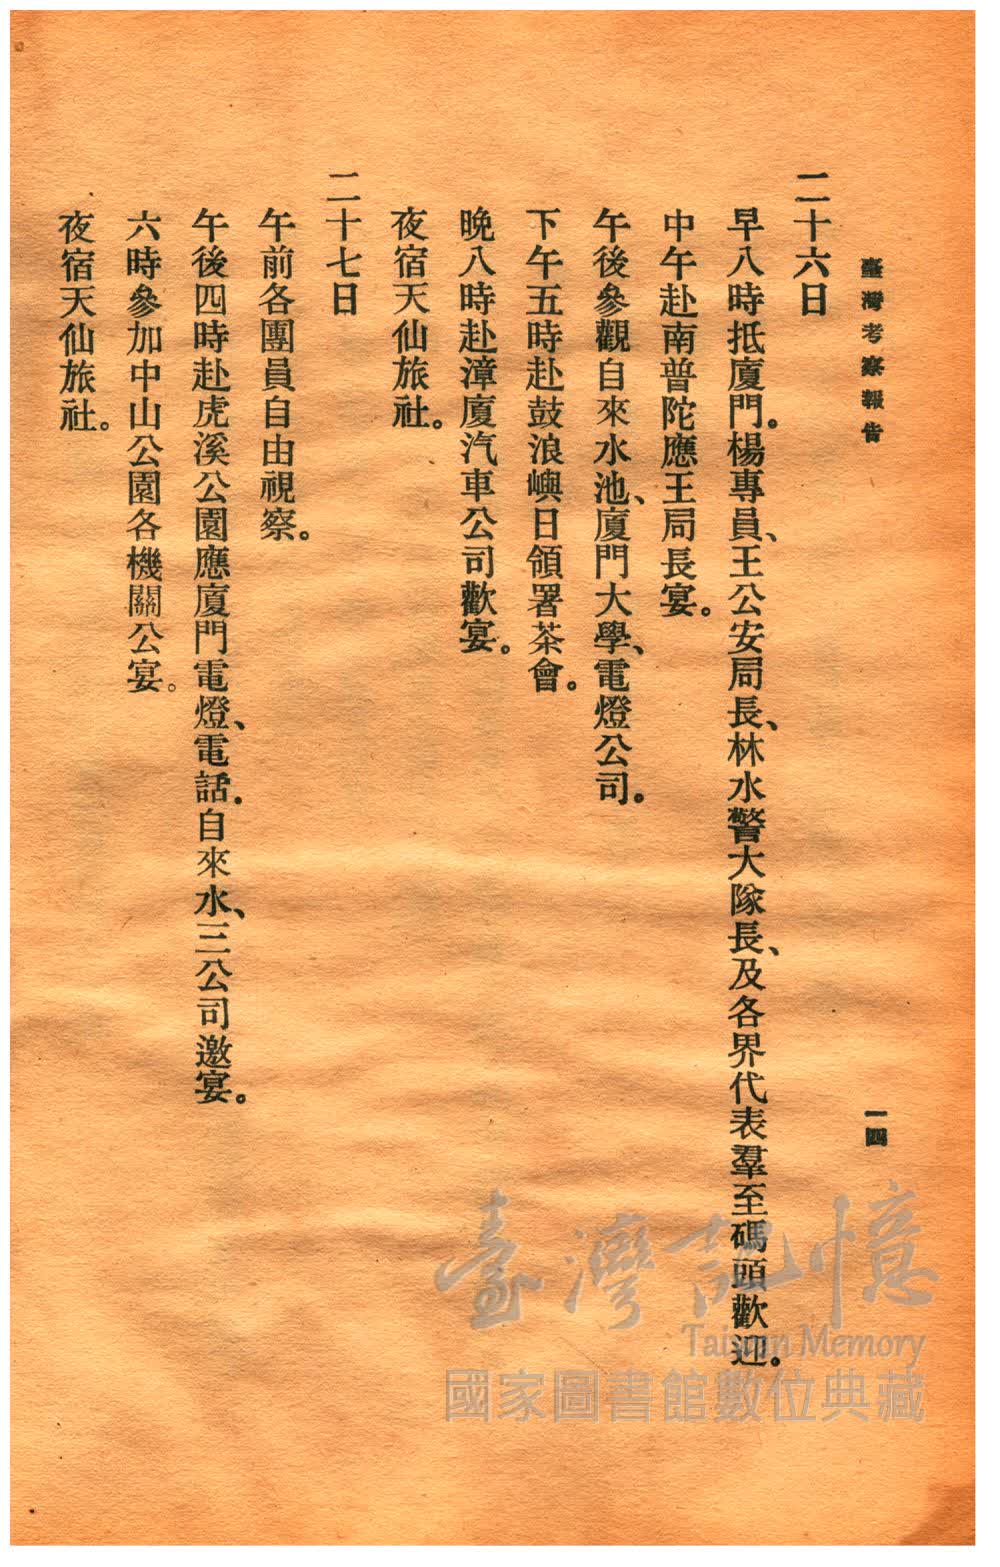 臺灣考察報告
一四
二十六日
早八時抵廈門。楊專員、王公安局長、林水警大隊長、及各界代表羣至碼頭歡迎。
中午赴南普陀應王局長宴。
午後參觀自來水池、廈門大學、電燈公司。
下午五時赴鼓浪嶼日領署茶會。
晚八時赴漳廈汽車公司歡宴。
夜宿天仙旅社。
二十七日
午前各團員自由視察。
午後四時赴虎溪公園應廈門電燈、電話．自來水、三公司邀宴。
六時參加中山公園各機關公宴。
夜宿天仙旅社。
臺灣記憶
Taiwan Memory
國家圖書館數位典藏